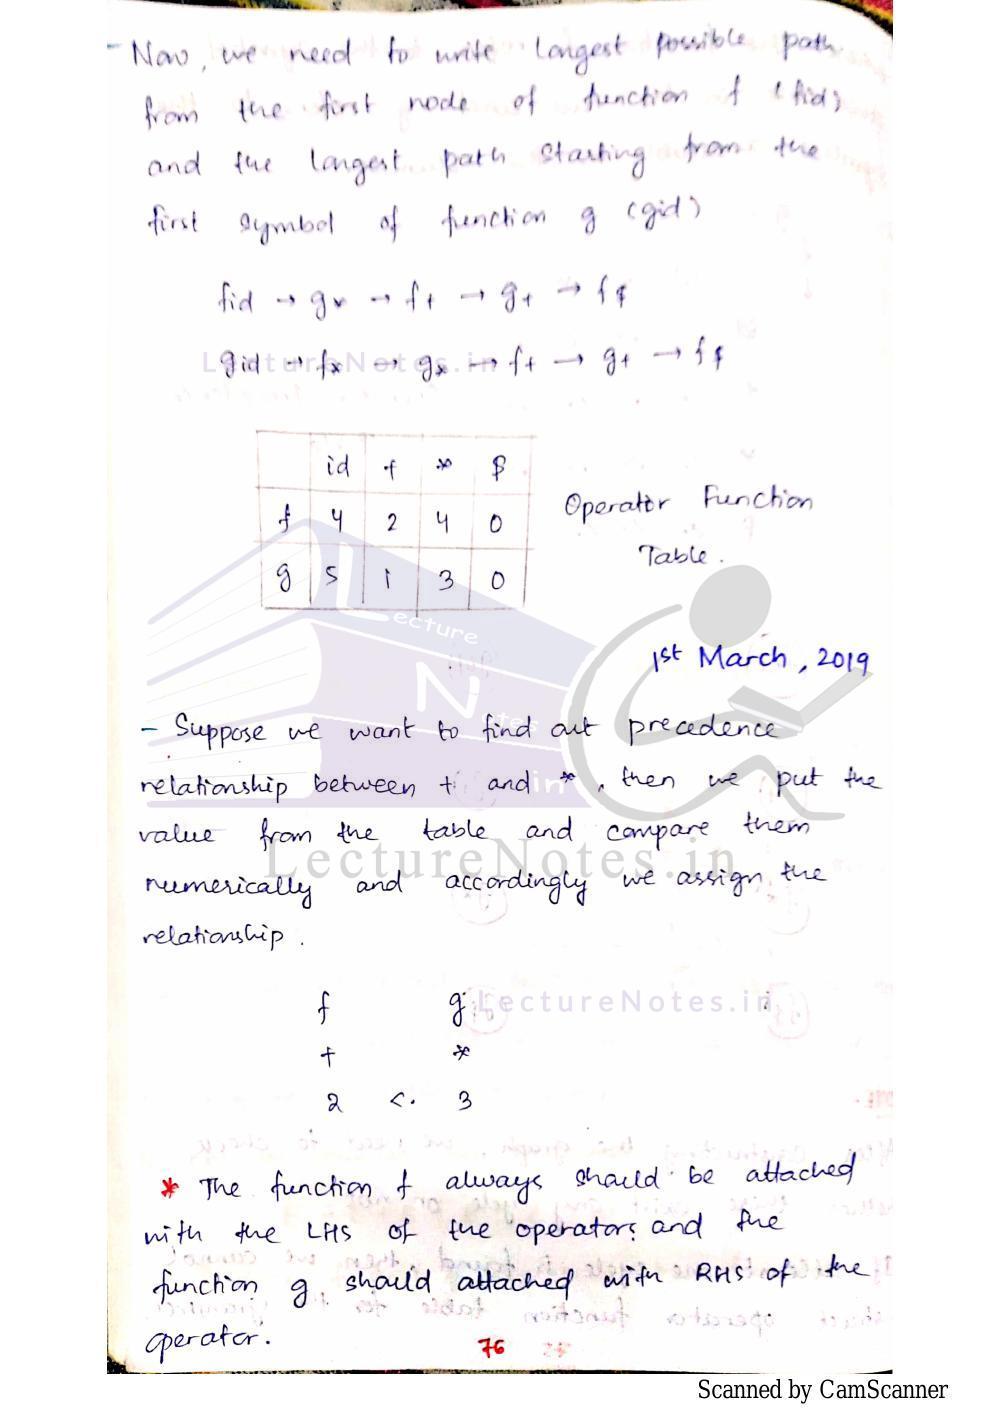 - Now, we need to write longest possible path
from the first node of function f (fid)
and the longest path starting from the
first symbol of function g (gid)
fid → g* → f+ → g+ → f$
gid → f* → g* → f+ → g+ → f$
id + * $
f 4 2 4 0
g 5 1 3 0
Operator Function
Table.
1st March, 2019
- Suppose we want to find out precedence
relationship between + and *, then we put the
value from the table and compare them
numerically and accordingly we assign the
relationship.
f g
+ *
2 <. 3
* The function f always should be attached
with the LHS of the operators and the
function g should attached with RHS of the
operator.
76
LectureNotes.in
LectureNotes.in
Lecture
Notes
.in
LectureNotes.in
Scanned by CamScanner